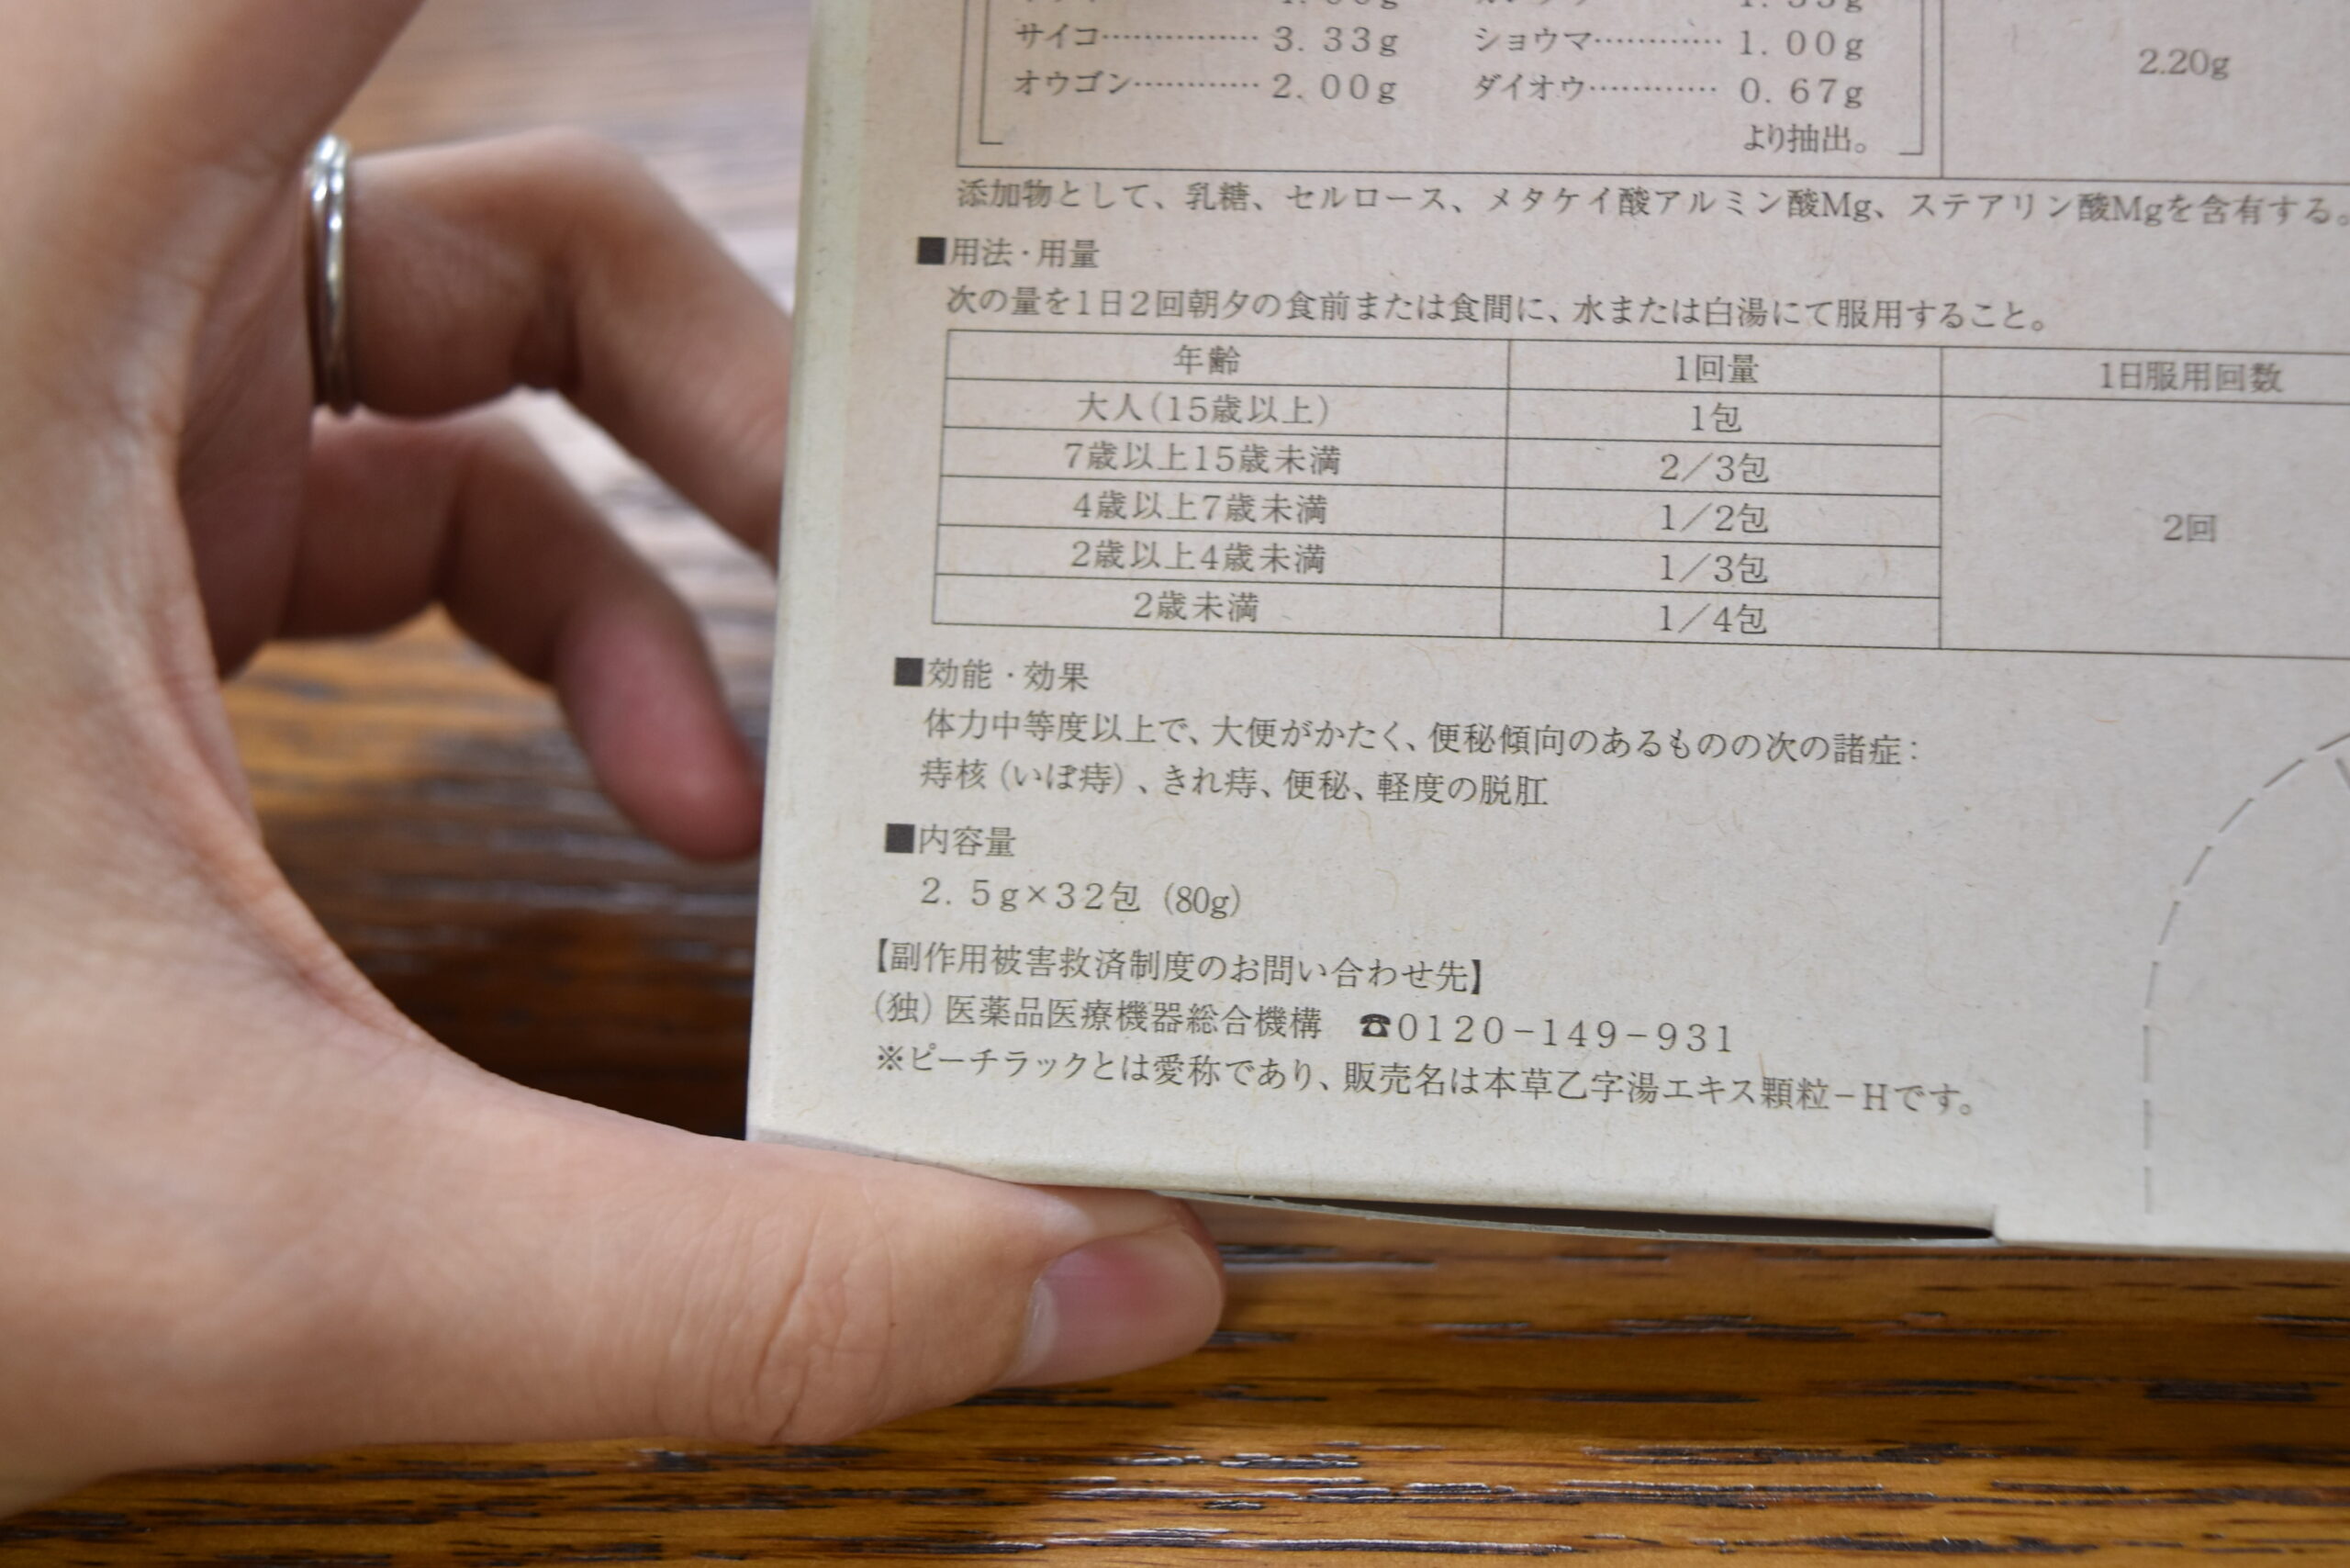 サイコ…………… 3.33g ショウマ………… 1.00g
オウゴン………… 2.00g ダイオウ………… 0.67g
より抽出。
2.20g
添加物として、乳糖、セルロース、メタケイ酸アルミン酸Mg、ステアリン酸Mgを含有する。
■用法・用量
次の量を1日2回朝夕の食前または食間に、水または白湯にて服用すること。
年齢 1回量 1日服用回数
大人(15歳以上) 1包
7歳以上15歳未満 2/3包
4歳以上7歳未満 1/2包
2回
2歳以上4歳未満 1/3包
2歳未満 1/4包
■効能・効果
体力中等度以上で、大便がかたく、便秘傾向のあるものの次の諸症:
痔核(いぼ痔)、きれ痔、便秘、軽度の脱肛
■内容量
2.5g×32包(80g)
【副作用被害救済制度のお問い合わせ先】
(独)医薬品医療機器総合機構 ☎0120-149-931
※ピーチラックとは愛称であり、販売名は本草乙字湯エキス顆粒-Hです。